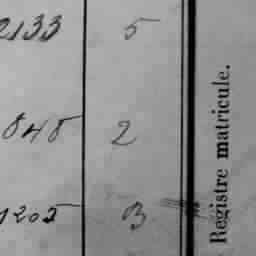 2133 5
848 2
1205 3
Registre matricule.